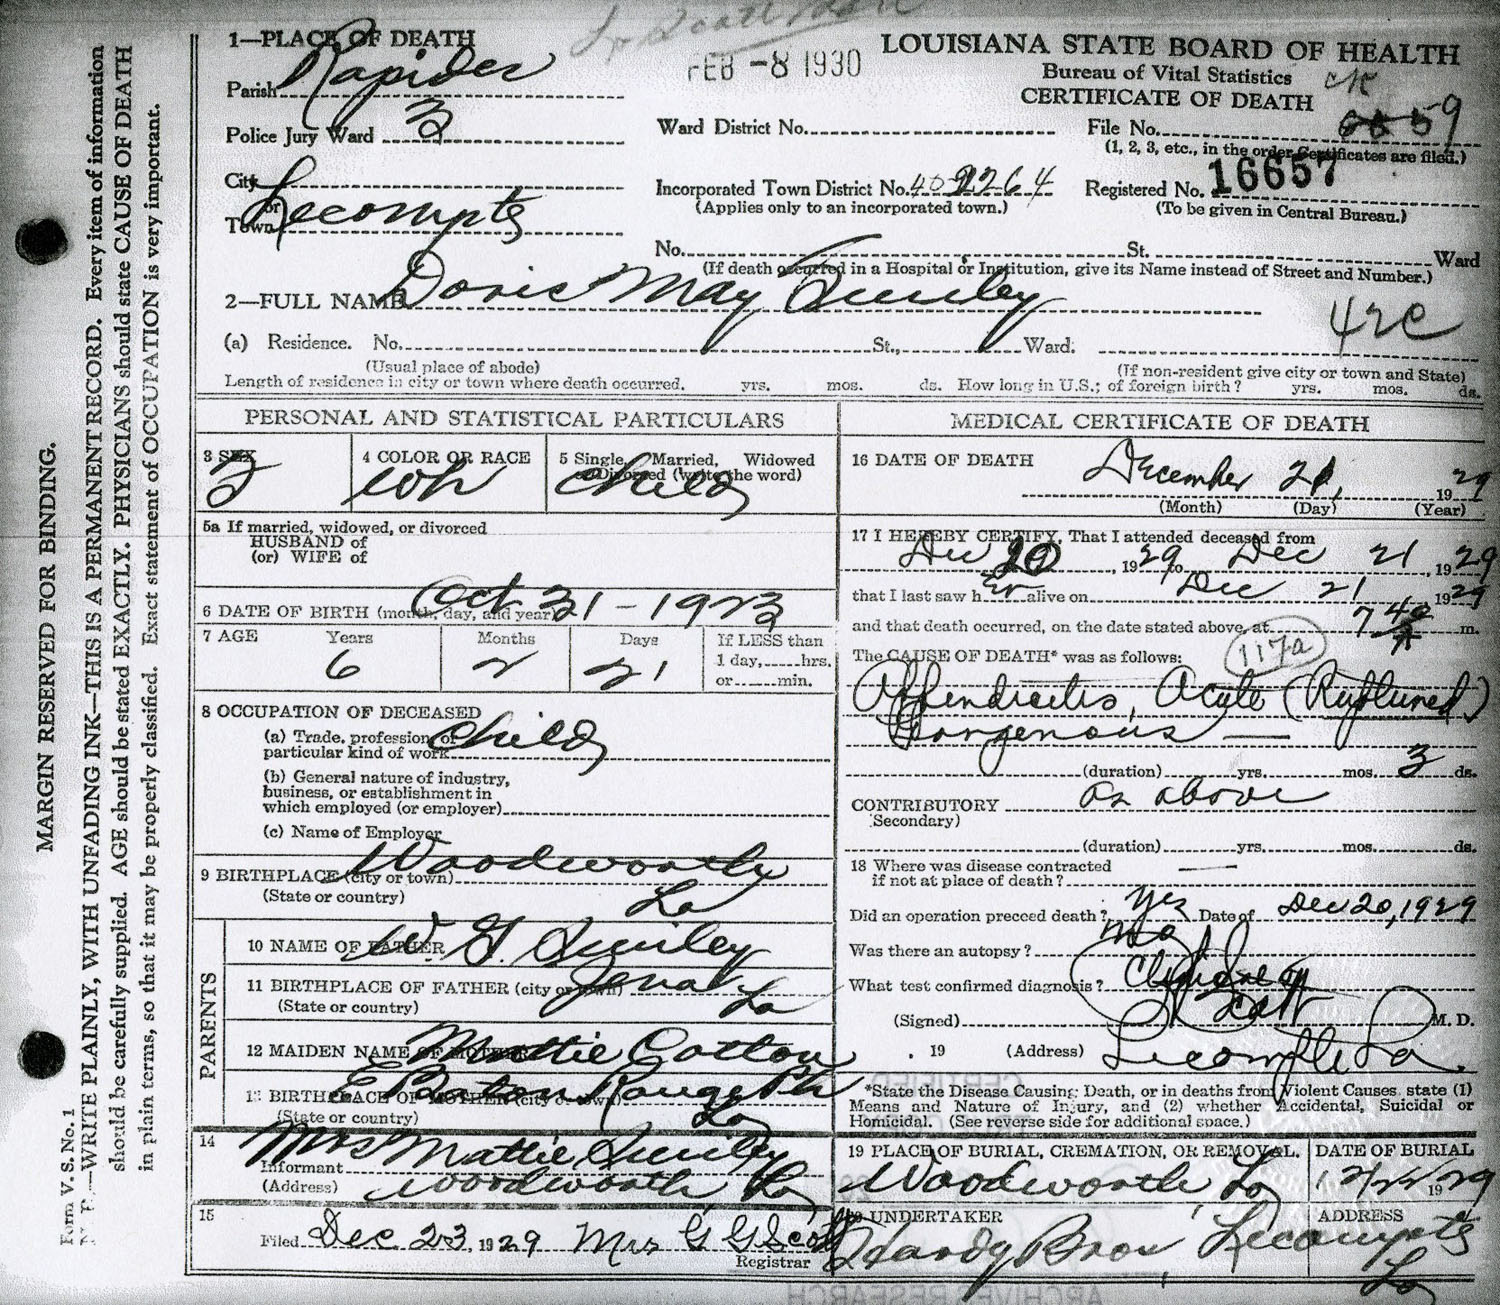 FEB -8 1930
LOUISIANA STATE BOARD OF HEALTH
Bureau of Vital Statistics
CERTIFICATE OF DEATH
1—PLACE OF DEATH
Parish Rapides
Police Jury Ward 3
Ward District No.
File No. 59
(1, 2, 3, etc., in the order Certificates are filed.)
City
or
Town Lecompte
Incorporated Town District No. 40-2264
(Applies only to an incorporated town.)
Registered No. 16657
(To be given in Central Bureau.)
No. St. Ward
(If death occurred in a Hospital or Institution, give its Name instead of Street and Number.)
2—FULL NAME Doris May
42c
(a) Residence. No. St., Ward.
(Usual place of abode)
(If non-resident give city or town and State)
Length of residence in city or town where death occurred. yrs. mos. ds. How long in U.S.; of foreign birth? yrs. mos. ds.
PERSONAL AND STATISTICAL PARTICULARS
3 SEX
F
4 COLOR OR RACE
Wh
5 Single, Married, Widowed
or Divorced (write the word)
Child
5a If married, widowed, or divorced
HUSBAND of
(or) WIFE of
6 DATE OF BIRTH (month, day, and year) Oct 31 - 1923
7 AGE Years Months Days If LESS than
1 day, hrs.
or min.
6 2 21
8 OCCUPATION OF DECEASED
(a) Trade, profession or
particular kind of work Child
(b) General nature of industry,
business, or establishment in
which employed (or employer)
(c) Name of Employer
9 BIRTHPLACE (city or town) Woodworth
(State or country) La
PARENTS
10 NAME OF FATHER W. G.
11 BIRTHPLACE OF FATHER (city or town) Jena
(State or country) La
12 MAIDEN NAME OF MOTHER Mattie Cotton
13 BIRTHPLACE OF MOTHER (city or town) E Baton Rouge Ph
(State or country) La
14
Informant Mrs Mattie
(Address) Woodworth, La
15
Filed Dec 23, 1929 Mrs G G Scott
Registrar
MEDICAL CERTIFICATE OF DEATH
16 DATE OF DEATH
December 21, 1929
(Month) (Day) (Year)
17 I HEREBY CERTIFY, That I attended deceased from
Dec 20, 1929 to Dec 21, 1929
that I last saw her alive on Dec 21 1929
and that death occurred, on the date stated above, at 7 40 A m.
The CAUSE OF DEATH* was as follows: 117a
Appendicitis, Acute (Ruptured)
Gangrenous
(duration) yrs. mos. 3 ds.
CONTRIBUTORY as above
(Secondary)
(duration) yrs. mos. ds.
18 Where was disease contracted
if not at place of death? —
Did an operation precede death? Yes Date of Dec 20, 1929
Was there an autopsy? no
What test confirmed diagnosis?
(Signed) Scott M. D.
, 19 (Address) Lecompte La.
*State the Disease Causing Death, or in deaths from Violent Causes state (1)
Means and Nature of Injury, and (2) whether Accidental, Suicidal or
Homicidal. (See reverse side for additional space.)
19 PLACE OF BURIAL, CREMATION, OR REMOVAL. DATE OF BURIAL
Woodworth, La 12/22 1929
20 UNDERTAKER ADDRESS
Hardy Bros, Lecompte
La
MARGIN RESERVED FOR BINDING.
N. B.—WRITE PLAINLY, WITH UNFADING INK—THIS IS A PERMANENT RECORD. Every item of information
should be carefully supplied. AGE should be stated EXACTLY. PHYSICIANS should state CAUSE OF DEATH
in plain terms, so that it may be properly classified. Exact statement of OCCUPATION is very important.
Form V. S. No. 1